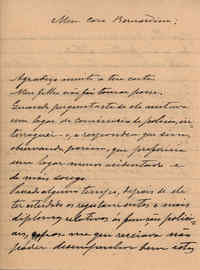 Meu caro Bernardino;
Agradeço muito a tua carta.
Meu filho não foi tomar posse.
Quando perguntaste se ele aceitava
um logar de comissario de policia, in-
terroguei-o, e respondeu que sim,
observando, porém, que preferiria
um logar menos accidentado e
de mais socego.
Passado algum tempo, depois de ele
ter estudado os regulamentos e mais
diplomas relativos à função polici-
al, expos-me que receiava não
poder desempenhar bem este